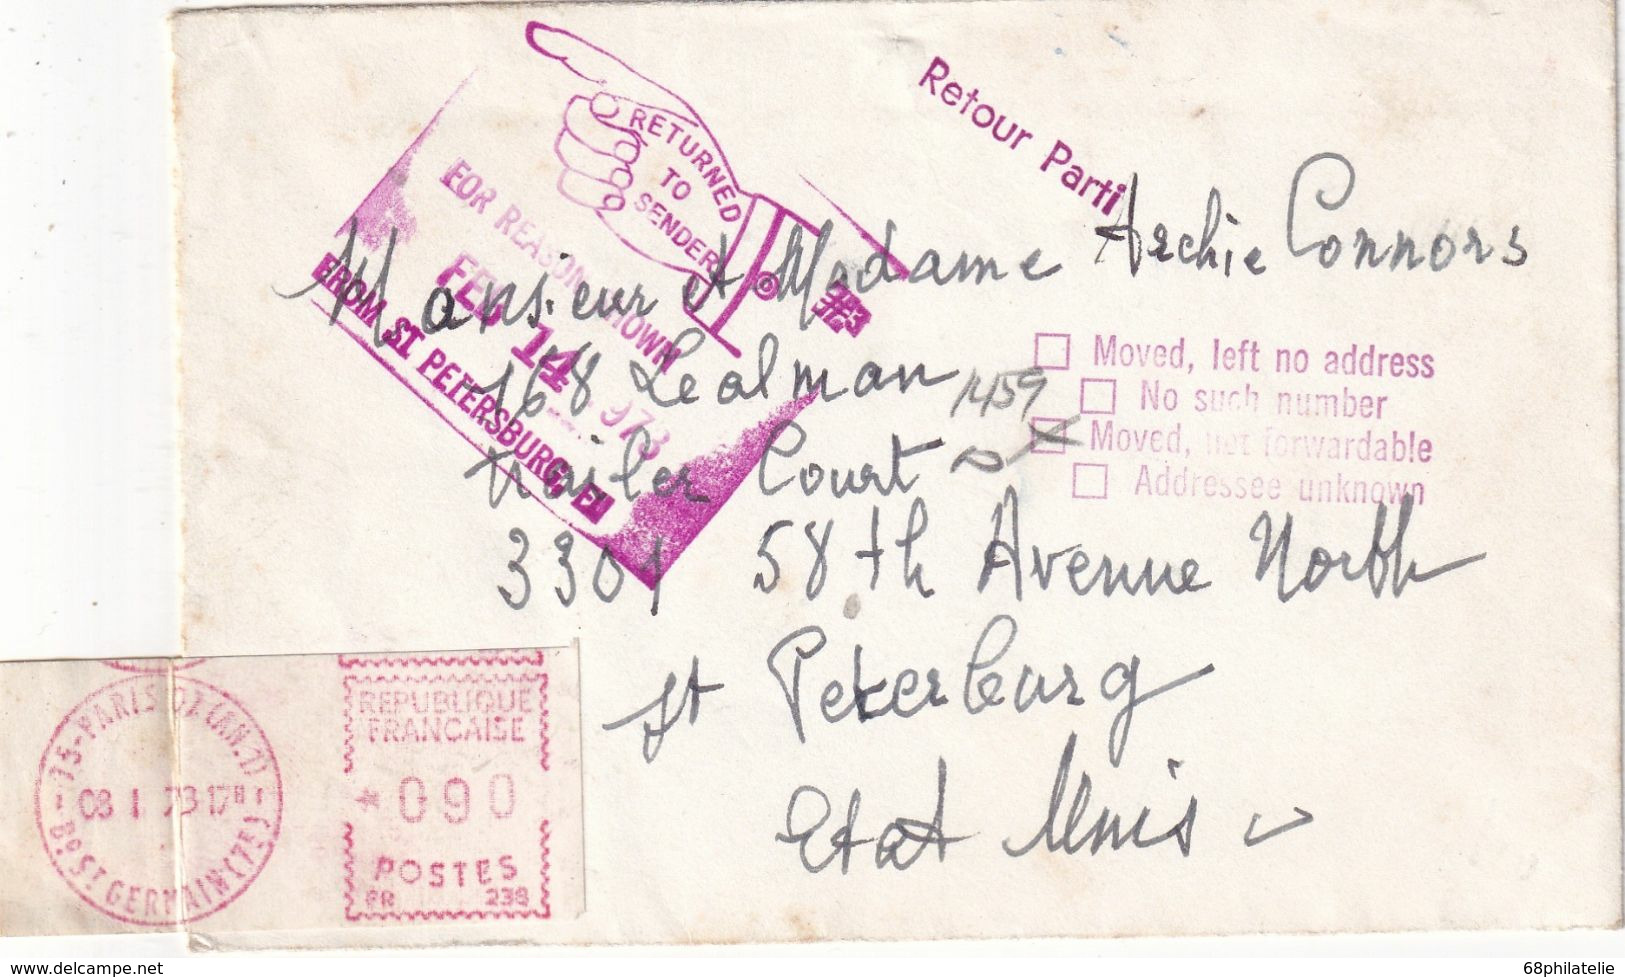 Retour Parti
RETURNED
TO
SENDER
FOR REASON SHOWN
FEB 14 1973
FROM ST. PETERSBURG, Fl
#3
Monsieur et Madame Archie Connors
168 Lealman
1459
Trailer Court
3301 58th Avenue North
St Petersburg
Etat Unis
Moved, left no address
No such number
Moved, not forwardable
Addressee unknown
75-PARIS
08 1 73 17H
Bd ST GERMAIN (7E)
REPUBLIQUE
FRANCAISE
*090
POSTES
PR 238
www.delcampe.net
68philatelie